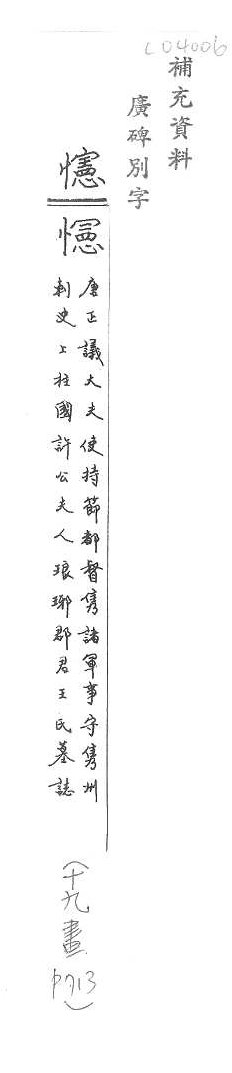 C04006
補充資料
廣碑別字
憶
唐正議大夫使持節都督雋諸軍事守雋州
刺史上柱國許公夫人琅琊郡君王氏墓誌
(十九畫
P713)